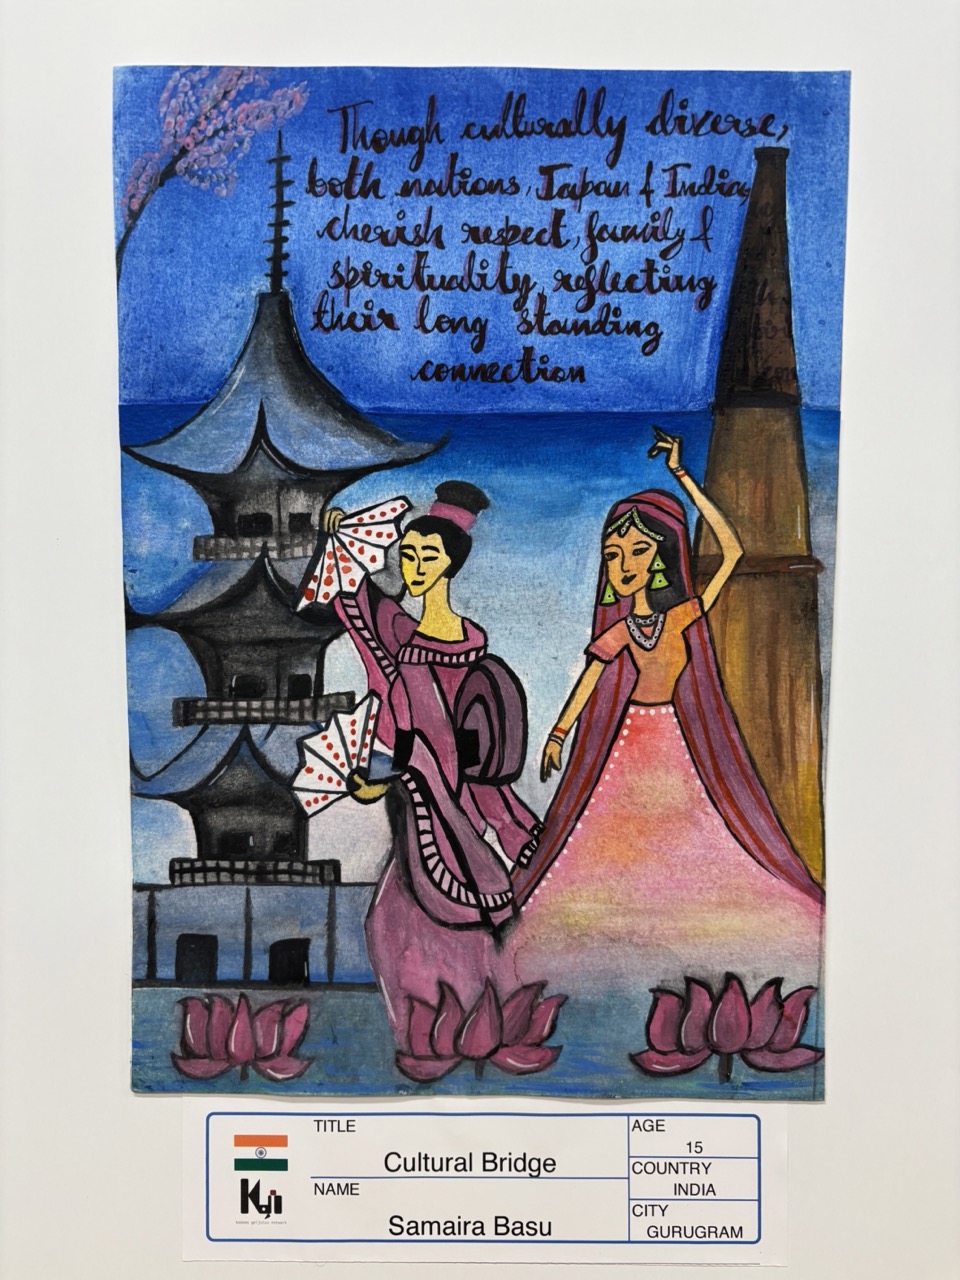 Though culturally diverse,
both nations, Japan & India,
cherish respect, family &
spirituality, reflecting
their long standing
connection
TITLE
Cultural Bridge
NAME
Samaira Basu
AGE
15
COUNTRY
INDIA
CITY
GURUGRAM